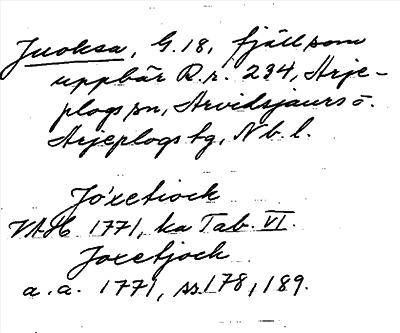 Juoksa, G.18, fjäll som
uppbär R.r. 234, Arje-
plogs sn, Arvidsjaurs o.
Arjeplogs tg, Nb. l.
Jo'xetiock
VAH 1771, ka Tab. VI.
Joxetjock
a. a. 1771, ss 178, 189.